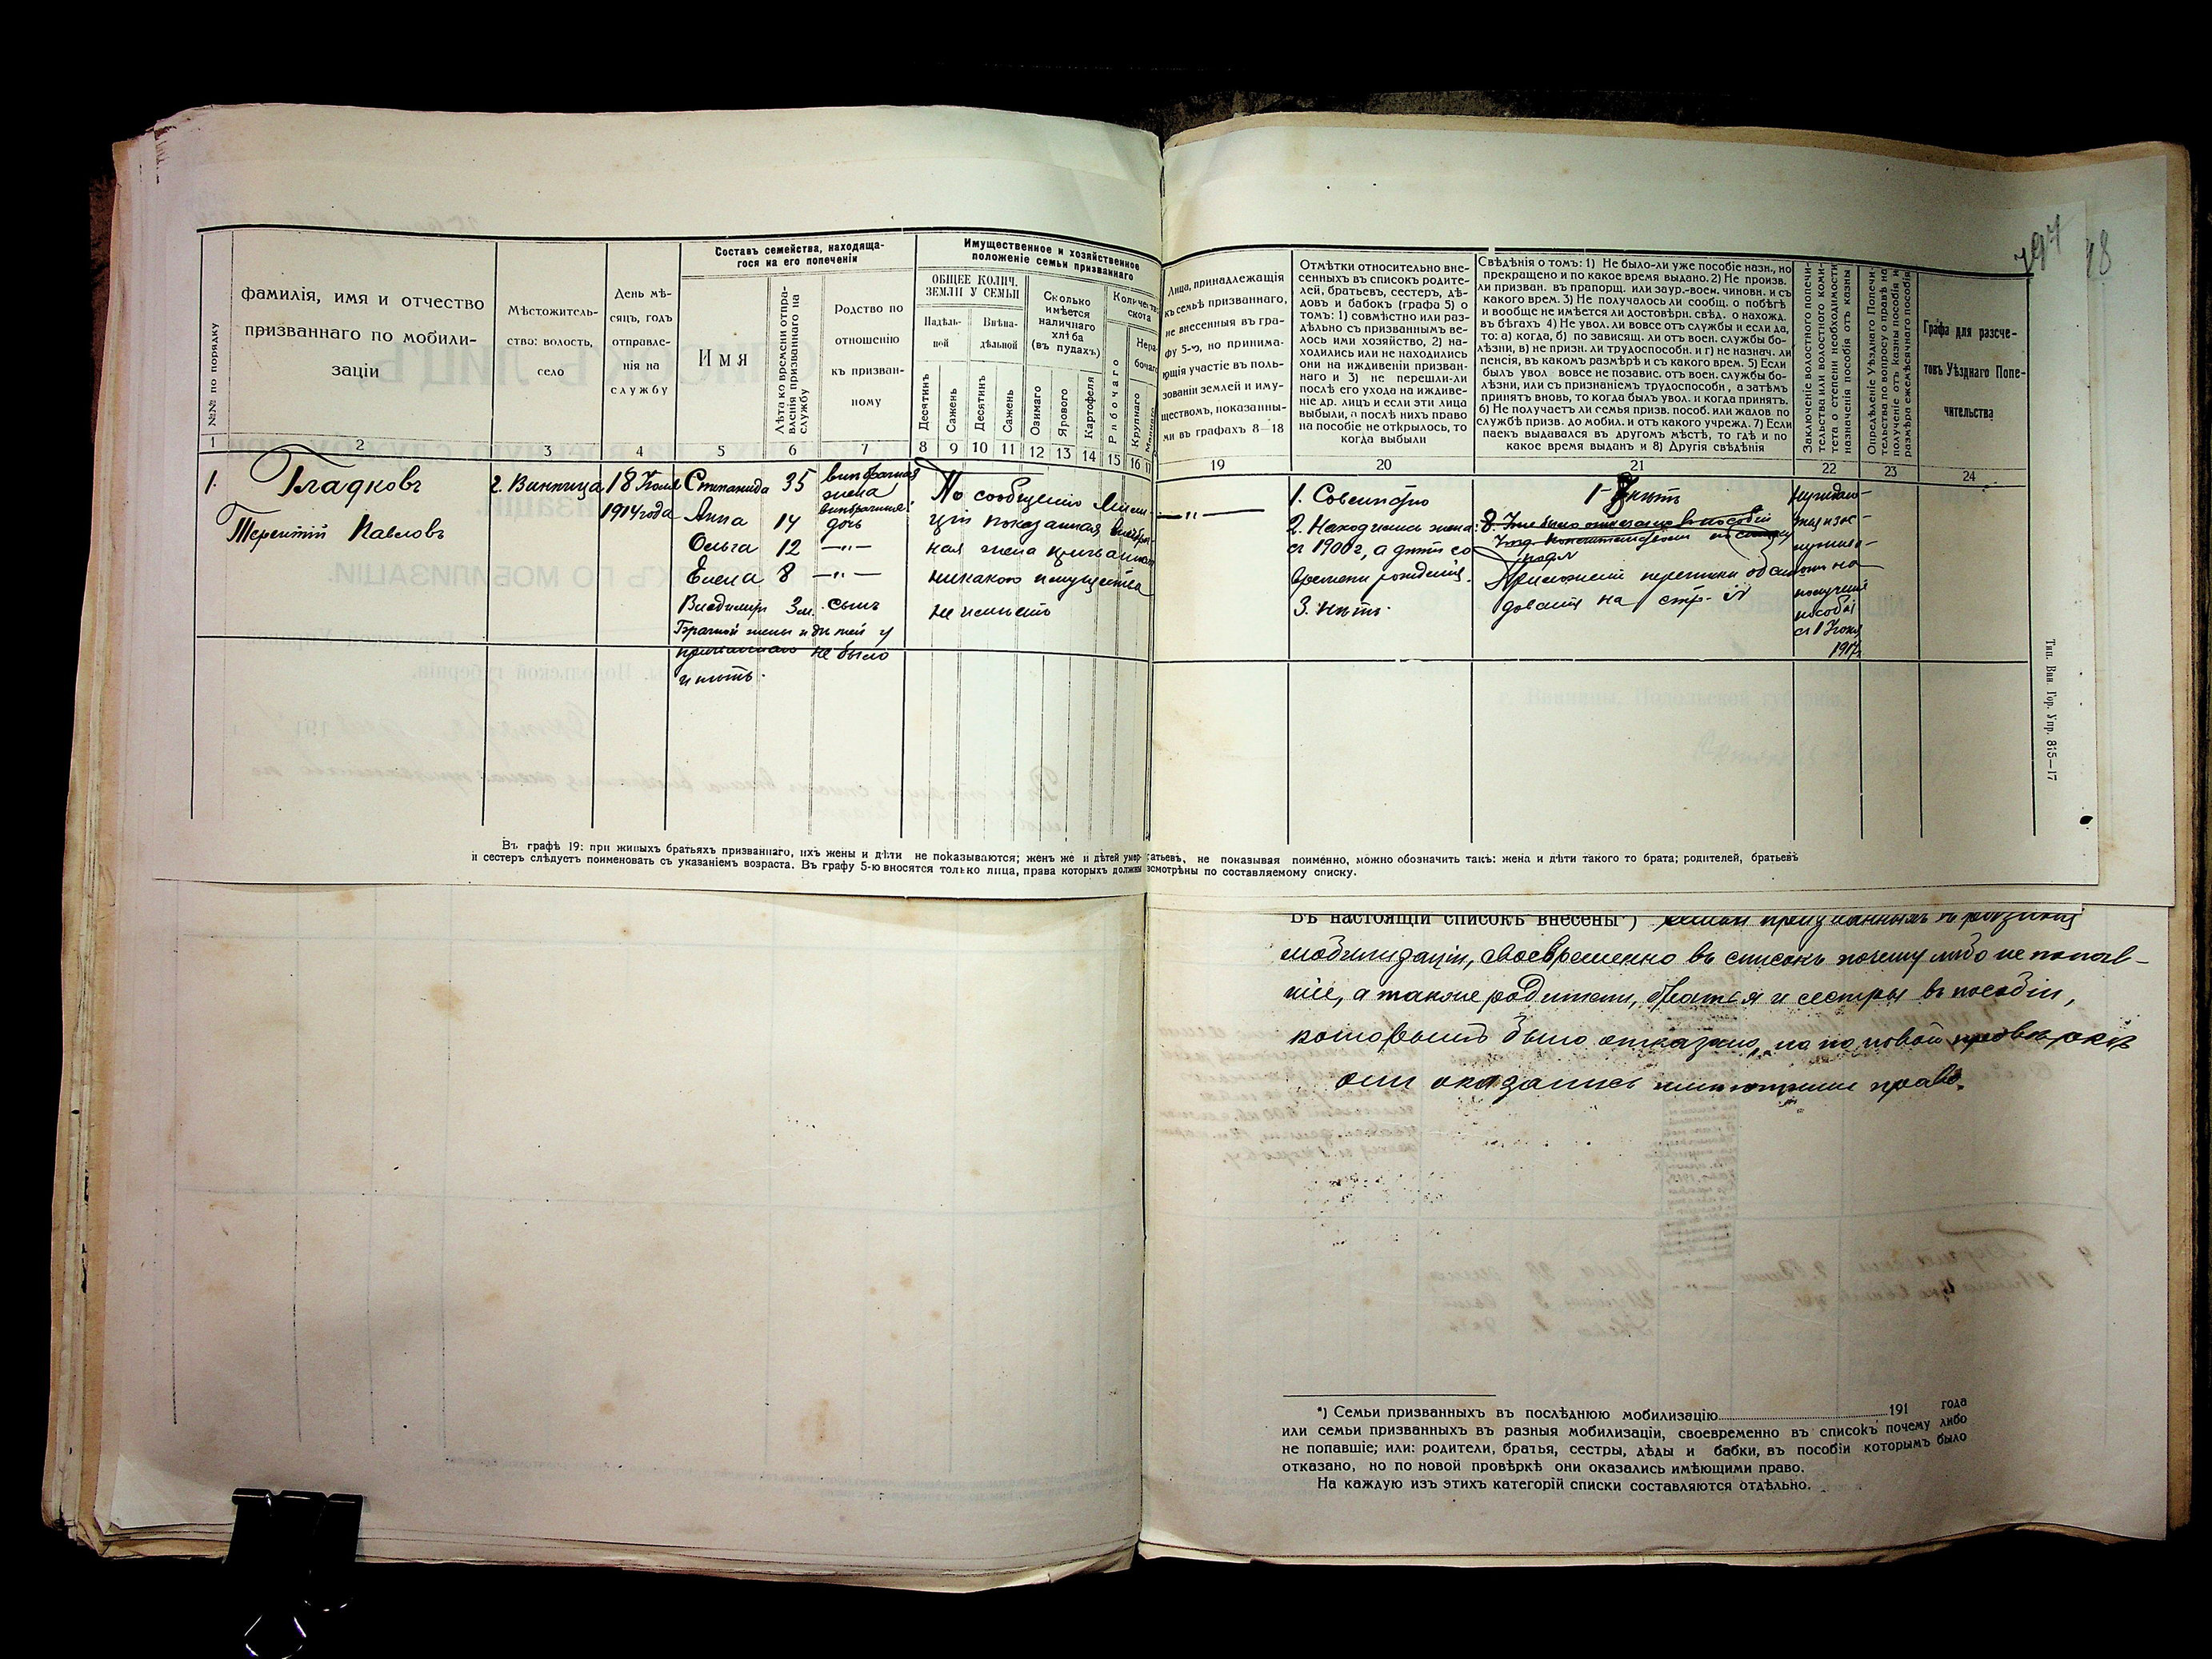 Составъ семейства, находяща-
гося на его попеченіи
Имущественное и хозяйственное
положеніе семьи призваннаго
№№ по порядку
фамилія, имя и отчество
призваннаго по мобили-
заціи
Мѣстожитель-
ство: волость,
село
День мѣ-
сяцъ, годъ
отправле-
нія на
службу
Имя
Лѣта ко времени отпра-
вленія призваннаго на
службу
Родство по
отношенію
къ призван-
ному
ОБЩЕЕ КОЛИЧ.
ЗЕМЛИ У СЕМЬИ
Надѣль-
ной
Внѣна-
дѣльной
Десятинъ
Сажень
Десятинъ
Сажень
Сколько
имѣется
наличнаго
хлѣба
(въ пудахъ)
Озимаго
Ярового
Картофеля
Количество
скота
Рабочаго
Нера-
бочаго
Крупнаго
1 2 3 4 5 6 7 8 9 10 11 12 13 14 15 16
1. Гладковъ
Терентій Павловъ
г. Винница
18 Іюля
1914 года
Степанида 35 внѣбрачная
жена
Анна 14 внѣбрачная
дочь
Ольга 12 —"—
Елена 8 —"—
Владимиръ 3 м. сынъ
Брачной жены и дѣтей у
призваннаго не было
и нѣтъ.
По сообщенію Мили-
ціи показанная внѣбрач-
ная жена призваннаго
никакого имущества
не имѣетъ
Лица, принадлежащія
къ семьѣ призваннаго,
не внесенныя въ гра-
фу 5-ю, но принима-
ющія участіе въ поль-
зованіи землей и иму-
ществомъ, показанны-
ми въ графахъ 8—18
Отмѣтки относительно вне-
сенныхъ въ списокъ родите-
лей, братьевъ, сестеръ, дѣ-
довъ и бабокъ (графа 5) о
томъ: 1) совмѣстно или раз-
дѣльно съ призваннымъ ве-
лось ими хозяйство, 2) на-
ходились или не находились
они на иждивеніи призван-
наго и 3) не перешли-ли
послѣ его ухода на иждиве-
ніе др. лицъ и если эти лица
выбыли, а послѣ нихъ право
на пособіе не открылось, то
когда выбыли
Свѣдѣнія о томъ: 1) Не было-ли уже пособіе назн., но
прекращено и по какое время выдано. 2) Не произв.
ли призван. въ прапорщ. или заур.-воен. чиновн. и съ
какого врем. 3) Не получалось ли сообщ. о побѣгѣ
и вообще не имѣется ли достовѣрн. свѣд. о нахожд.
въ бѣгахъ 4) Не увол. ли вовсе отъ службы и если да,
то: а) когда, б) по зависящ. ли отъ воен. службы бо-
лѣзни, в) не призн. ли трудоспособн. и г) не назнач. ли
пенсія, въ какомъ размѣрѣ и съ какого врем. 5) Если
былъ увол вовсе не позавис. отъ воен. службы бо-
лѣзни, или съ признаніемъ трудоспособн, а затѣмъ
принятъ вновь, то когда былъ увол. и когда принятъ.
6) Не получаетъ ли семья призв. пособ. или жалов по
службѣ призв. до мобил. и отъ какого учрежд. 7) Если
паекъ выдавался въ другомъ мѣстѣ, то гдѣ и по
какое время выданъ и 8) Другія свѣдѣнія
Заключеніе волостного попечи-
тельства или волостного коми-
тета о степени необходимости
назначенія пособія отъ казны
Опредѣленіе Уѣзднаго Попечи-
тельства по вопросу о правѣ на
полученіе отъ казны пособія и
размѣра ежемѣсячнаго пособія
Графа для разсче-
товъ Уѣзднаго Попе-
чительства
19 20 21 22 23 24
—"—
1. Совмѣстно
2. Находилась жена
съ 1900 г, а дѣти со
времени рожденія.
3. Нѣтъ.
1-7 нѣтъ
8.
на стр.
получение
пособія
съ 1 Іюня
1917
Тип. Вин. Гор. Упр. 815—17
Въ графѣ 19: при живыхъ братьяхъ призваннаго, ихъ жены и дѣти не показываются; женъ же и дѣтей умер- ратьевъ, не показывая поименно, можно обозначить такъ: жена и дѣти такого то брата; родителей, братьевъ
и сестеръ слѣдуетъ поименовать съ указаніемъ возраста. Въ графу 5-ю вносятся только лица, права которыхъ должны зсмотрѣны по составляемому списку.
Въ настоящій списокъ внесены*) семьи призванныхъ въ разныя
мобилизаціи, своевременно въ списокъ почему либо не попав-
шіе, а также родители, братья и сестры въ пособіи,
которымъ было отказано, но по новой провѣркѣ
они оказались имѣющими право.
*) Семьи призванныхъ въ послѣднюю мобилизацію 191 года
или семьи призванныхъ въ разныя мобилизаціи, своевременно въ списокъ почему либо
не попавшіе; или: родители, братья, сестры, дѣды и бабки, въ пособіи которымъ было
отказано, но по новой провѣркѣ они оказались имѣющими право.
На каждую изъ этихъ категорій списки составляются отдѣльно.